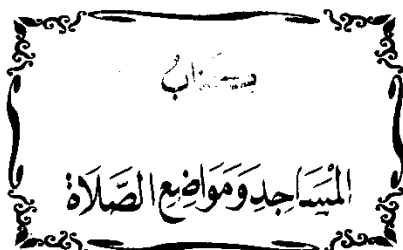 كتاب
المَسَاجِدِ وَمَوَاضِعِ الصَّلَاة